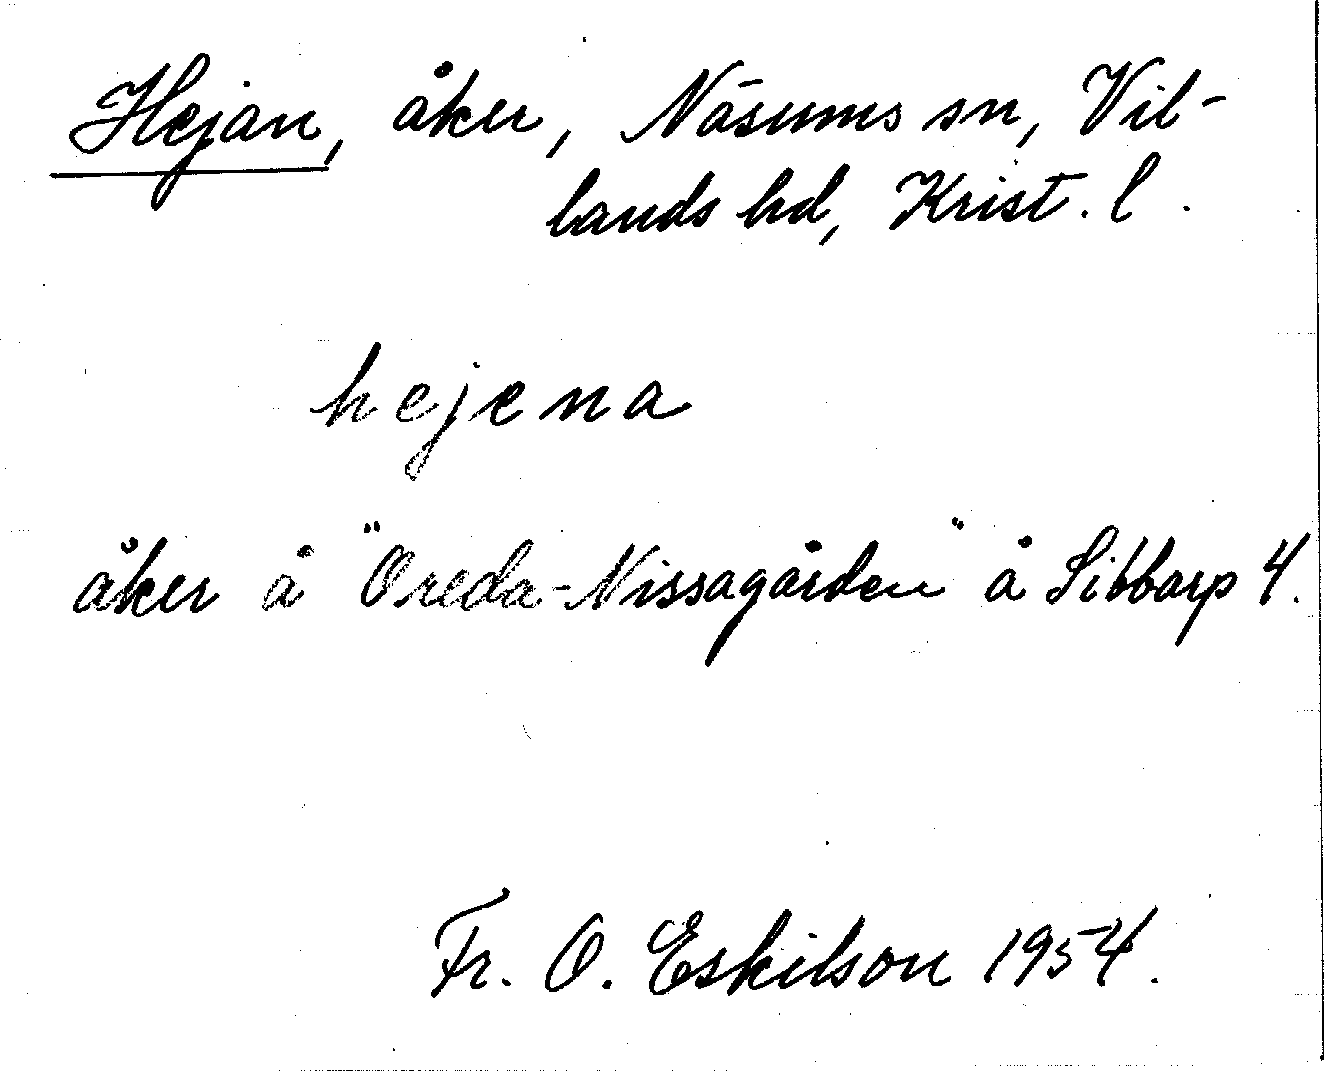 Hejan, åker, Näsums sn, Vil-
lands hd, Krist. l.
hejena
åker å "Oreda-Nissagården" å Sibbarp 4.
Fr. O. Eskilson 1954.